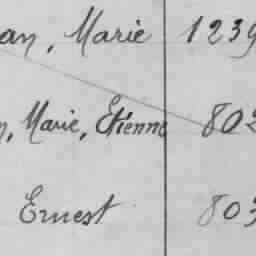 an, Marie 1239
n, Marie, Etienne 802
Ernest 803